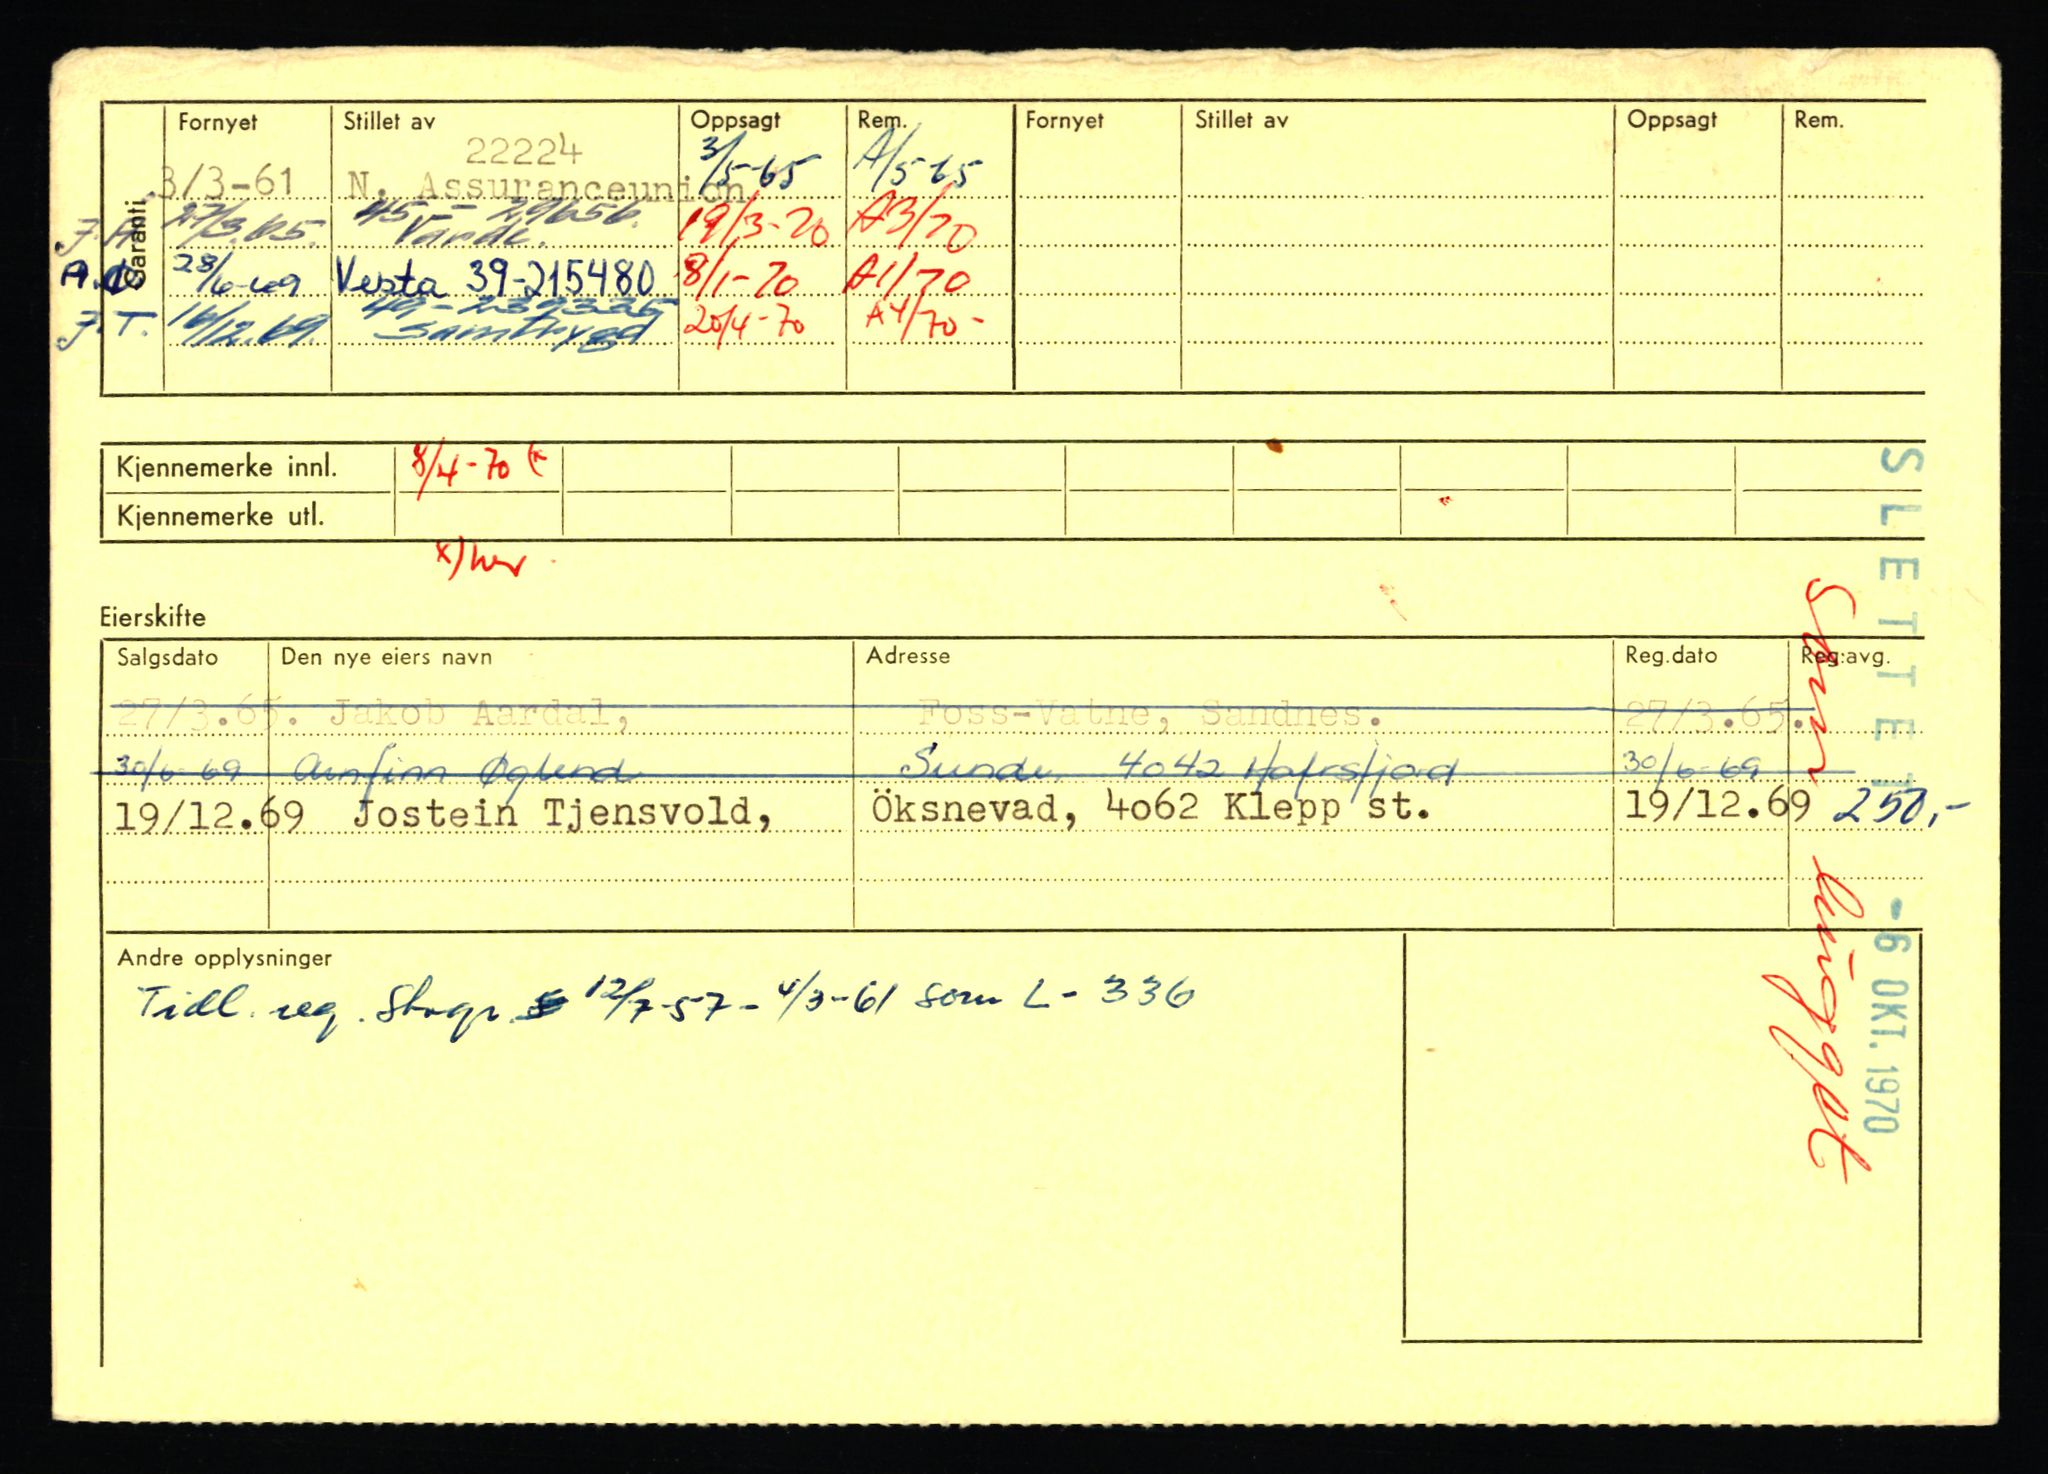 Garanti
Fornyet Stillet av Oppsagt Rem. Fornyet Stillet av Oppsagt Rem.
22224 3/5-65 A/5-65
3/3-61 N. Assuranceunion
J.A. 27/3.65. 45 - 29656. 19/3-70 A3/70
Varde.
28/6-69 Vesta 39-215480 8/1-70 A1/70
J.T. 16/12.69. 49-239335 20/4-70 A4/70-
Samtrygd
Kjennemerke innl. 8/4-70 (x
Kjennemerke utl.
x) her
Eierskifte
Salgsdato Den nye eiers navn Adresse Reg.dato Reg.avg.
27/3.65. Jakob Aardal, Foss-Vatne, Sandnes. 27/3.65.
30/6-69 Arnfinn Øglend Sunde 4042 Hafrsfjord 30/6-69
19/12.69 Jostein Tjensvold, Öksnevad, 4062 Klepp st. 19/12.69 250,-
Andre opplysninger
Tidl. reg. 12/7-57 - 4/3-61 som L-336
SLETTET
-6 OKT. 1970